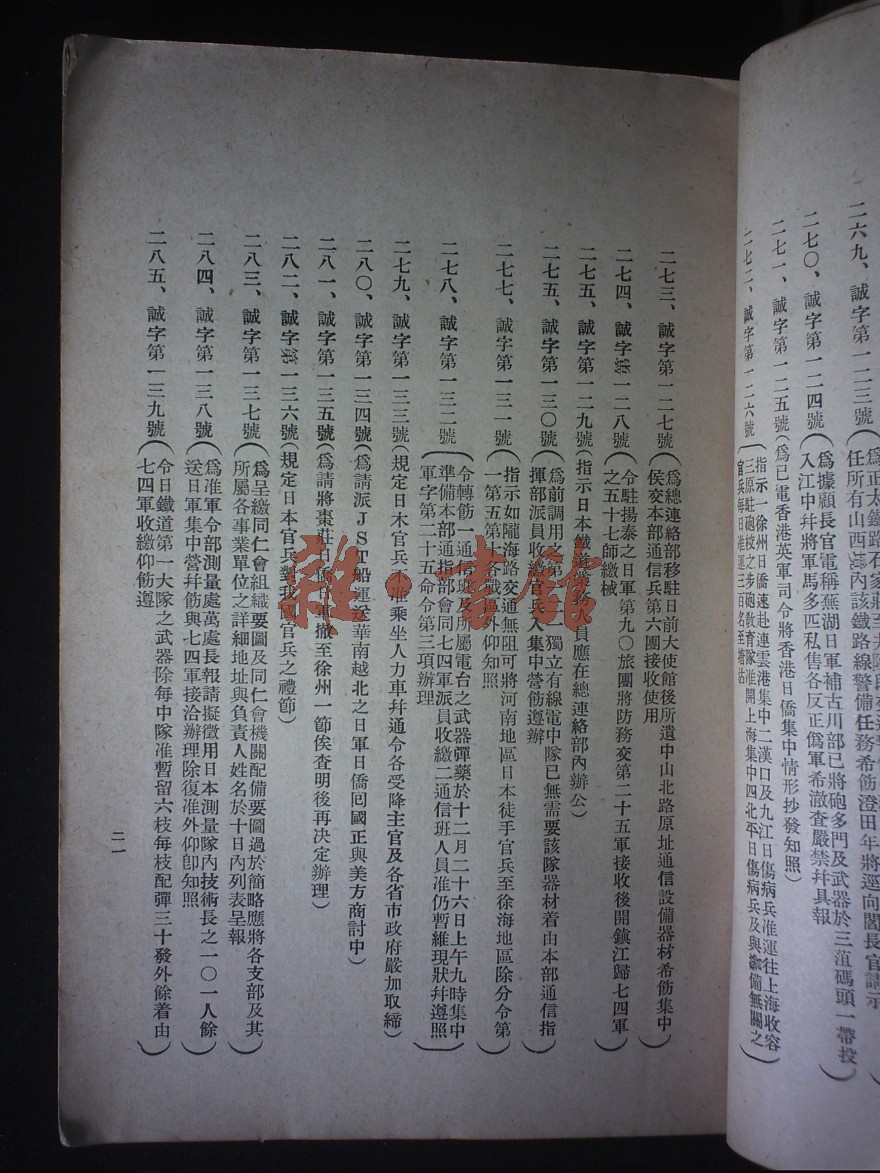 二六九、誠字第一二三號
任所有山西城內該鐵路線警備任務希飭澄田年將逕向閻長官請示
二七〇、誠字第一二四號
（爲據顧長官電稱蕪湖日軍補古川部已將砲多門及武器於三菹碼頭一帶投
入江中幷將軍馬多匹私售各反正僞軍希澈查嚴禁幷具報）
二七一、誠字第一二五號（爲已電香港英軍司令將香港日僑集中情形抄發知照）
二七二、誠字第一二六號
（指示一徐州日僑速赴連雲港集中二漢口及九江日傷病兵准運往上海收容
三原駐砲校之步砲敎育隊准開上海集中四北平日傷病兵及與無關之
官兵每日准運三百名至塘沽）
二七三、誠字第一二七號
（爲總連絡部移駐日前大使館後所遺中山北路原址通信設備器材希飭集中
侯交本部通信兵第六團接收使用）
二七四、誠字第一二八號
（令駐揚泰之日軍第九〇旅團將防務交第二十五軍接收後開鎮江歸七四軍
之五十七師繳械）
二七五、誠字第一二九號（指示日本鐵道業務人員應在總連絡部內辦公）
二七五、誠字第一三〇號
（爲前調用之第二二獨立有線電中隊已無需要該隊器材着由本部通信指
揮部派員收繳官兵入集中營飭遵辦）
二七七、誠字第一三一號
（指示如隴海路交通無阻可將河南地區日本徒手官兵至徐海地區除分令第
一第五第十各戰區外仰知照）
二七八、誠字第一三二號
（令轉飭一通信班及所屬電台之武器彈藥於十二月二十六日上午九時集中
準備本部通指部會同七四軍派員收繳二通信班人員准仍暫維現狀幷遵照
軍字第二十五命令第三項辦理）
二七九、誠字第一三三號（規定日木官兵不准乘坐人力車幷通令各受降主官及各省市政府嚴加取締）
二八〇、誠字第一三四號（爲請派JST船運送華南越北之日軍日僑囘國正與美方商討中）
二八一、誠字第一三五號（爲請將棗莊日僑日軍撤至徐州一節俟查明後再決定辦理）
二八二、誠字第一三六號（規定日本官兵對我國官兵之禮節）
二八三、誠字第一三七號
（爲呈繳同仁會組織要圖及同仁會機關配備要圖過於簡略應將各支部及其
所屬各事業單位之詳細地址與負責人姓名於十日內列表呈報）
二八四、誠字第一三八號
（爲准軍令部測量處萬處長報請擬徵用日本測量隊內技術長之一〇一人餘
送日軍集中營幷飭與七四軍接洽辦理除復准外仰卽知照）
二八五、誠字第一三九號
（令日鐵道第一大隊之武器除每中隊准暫留六枝每枝配彈三十發外餘着由
七四軍收繳仰飭遵）
二一
雜·書館